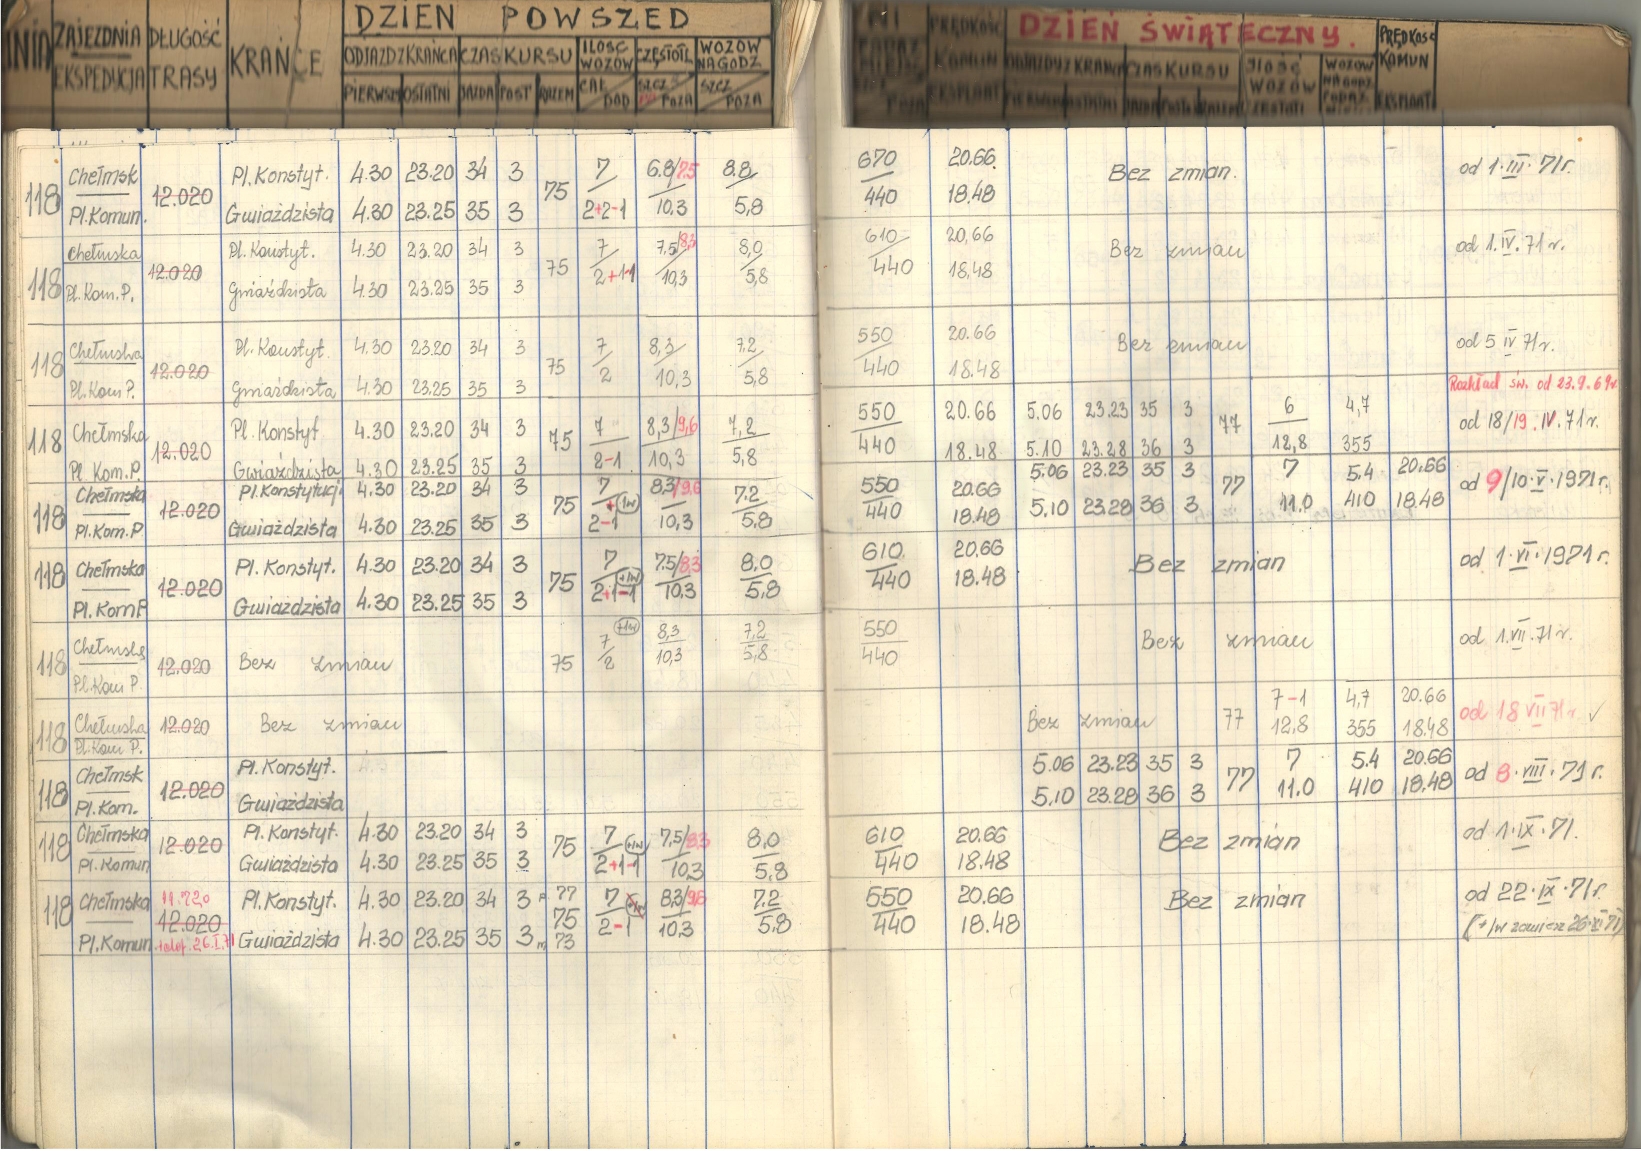 DZIEŃ POWSZED
ZAJEZDNIA DŁUGOŚĆ KRAŃCE ODJAZD Z KRAŃCA CZAS KURSU ILOSC WOZÓW CZĘSTOTL WOZÓW NA GODZ
EKSPEDYCJA TRASY PIERWSZY OSTATNI JAZDA POST RAZEM CAŁ DOD SZCZ POZA SZCZ POZA
DZIEŃ ŚWIĄTECZNY.
PRĘDKOŚĆ KOMUN EKSPLOAT ODJAZDY Z KRAŃCA CZAS KURSU ILOŚĆ WOZÓW PRĘDKOŚĆ KOMUN EKSPLOAT
118 Chełmsk 12.020 Pl. Konstyt. 4.30 23.20 34 3 75 7 6.8/7.5 8.8 670 20.66 Bez zmian. od 1·III·71r.
Pl. Komun. Gwiaździsta 4.30 23.25 35 3 2+2-1 10,3 5,8 440 18.48
118 Chełmska 12.020 Pl. Konstyt. 4.30 23.20 34 3 75 7 7.5/8,3 8,0 610 20,66 Bez zmian od 1.IV.71r.
Pl. Kom. P. Gwiaździsta 4.30 23.25 35 3 2+1-1 10,3 5,8 440 18.48
118 Chełmska 12.020 Pl. Konstyt. 4.30 23.20 34 3 75 7 8,3 7,2 550 20.66 Bez zmian od 5 IV 71r.
Pl. Kom P. Gwiaździsta 4.30 23.25 35 3 2 10,3 5,8 440 18.48
Rozkład św. od 23.9.69r.
118 Chełmska 12.020 Pl. Konstyt 4.30 23.20 34 3 75 7 8,3/9,6 7,2 550 20.66 5.06 23.23 35 3 77 6 4,7 od 18/19.IV.71r.
Pl. Kom. P. Gwiaździsta 4.30 23.25 35 3 2-1 10,3 5,8 440 18.48 5.10 23.28 36 3 12,8 355
118 Chełmska 12.020 Pl. Konstytucji 4.30 23.20 34 3 75 7 +1w 8,3/9,6 7.2 550 20.66 5.06 23.23 35 3 77 7 5.4 20.66 od 9/10·V·1971r.
Pl. Kom. P Gwiaździsta 4.30 23.25 35 3 2-1 10,3 5,8 440 18.48 5.10 23.28 36 3 11.0 410 18.48
118 Chełmska 12.020 Pl. Konstyt. 4.30 23.20 34 3 75 7 +1w 7.5/8.3 8.0 610 20.66 Bez zmian od 1·VI·1971r.
Pl. Kom P Gwiaździsta 4.30 23.25 35 3 2+1-1 10.3 5,8 440 18.48
118 Chełmska 12.020 Bez zmian 75 7 +1w 8,3 7,2 550 Bez zmian od 1.VII.71r.
Pl. Kom P. 2 10,3 5,8 440
118 Chełmska 12.020 Bez zmian Bez zmian 77 7-1 4,7 20.66 od 18 VII 71r. ✓
Pl. Kom P. 12,8 355 18.48
118 Chełmsk 12.020 Pl. Konstyt. 5.06 23.23 35 3 77 7 5.4 20.66 od 8·VIII·71r.
Pl. Kom. Gwiaździsta 5.10 23.28 36 3 11.0 410 18.48
118 Chełmska 12.020 Pl. Konstyt. 4.30 23.20 34 3 75 7 +1w 7,5/8,3 8,0 610 20.66 Bez zmian od 1·IX·71.
Pl. Komun Gwiaździsta 4.30 23.25 35 3 2+1-1 10,3 5,8 440 18.48
118 Chełmska 11.720 12.020 Pl. Konstyt. 4.30 23.20 34 3 77 75 7 8.3/9.6 7.2 550 20.66 Bez zmian od 22·IX·71r.
Pl. Komun. Gwiaździsta 4.30 23.25 35 3 73 2-1 10.3 5.8 440 18.48